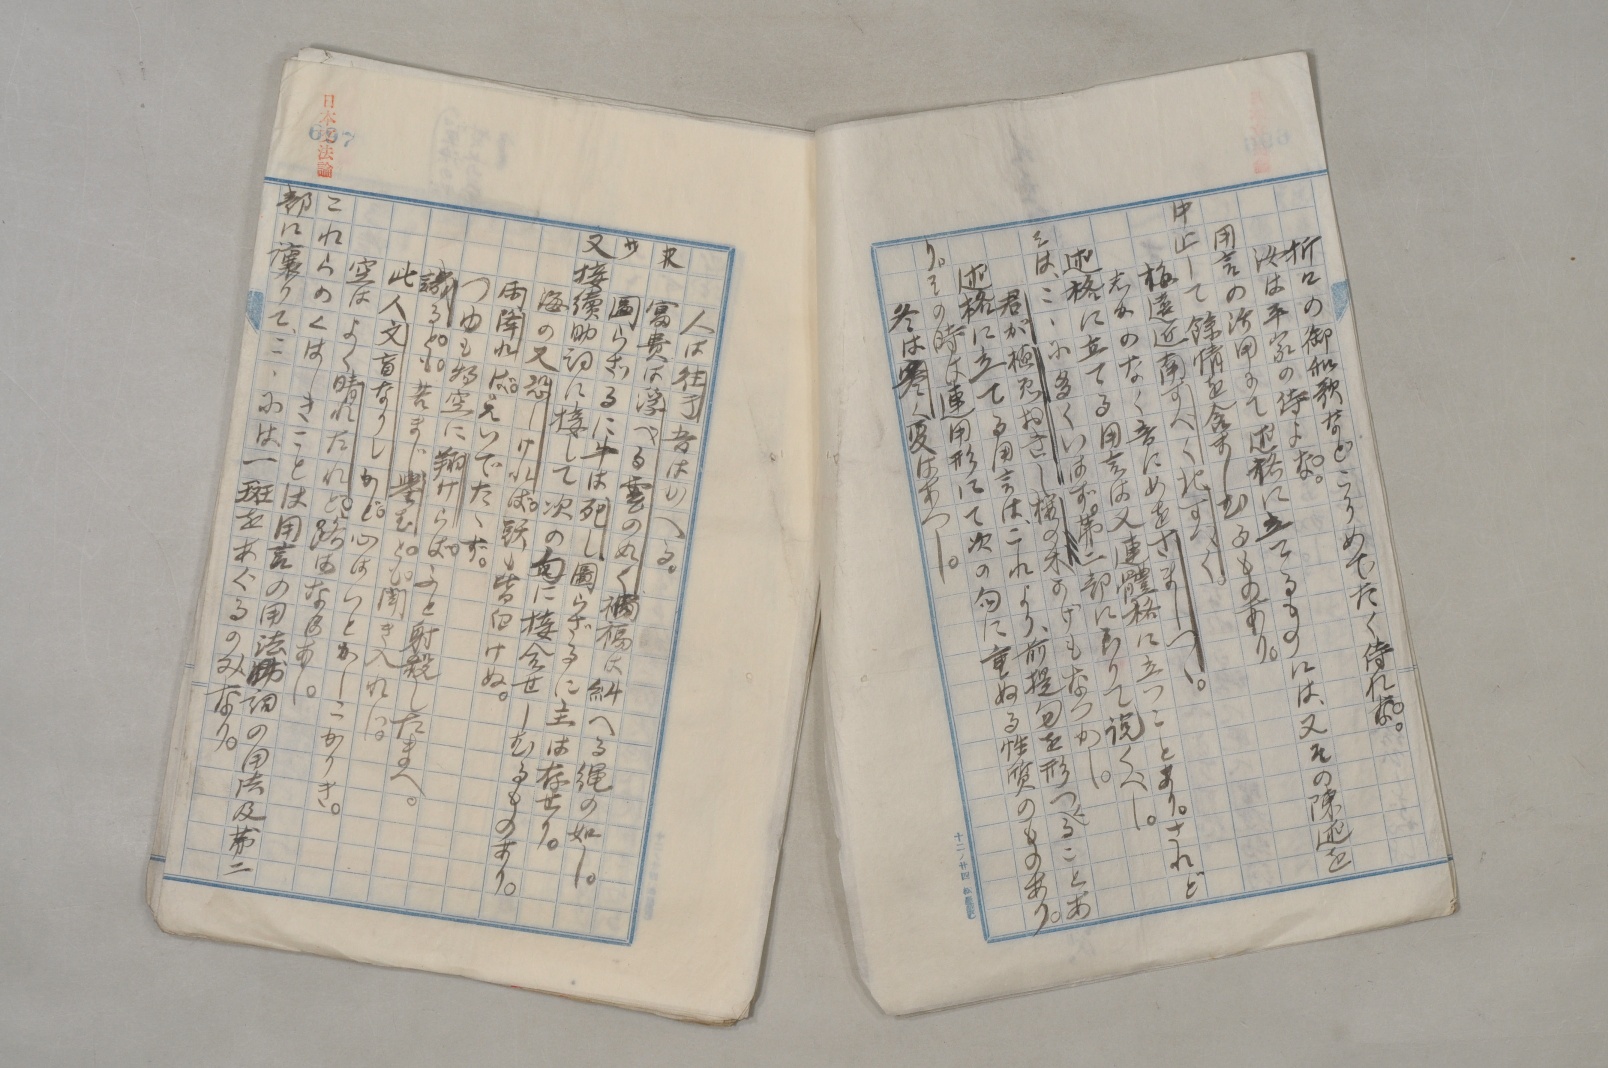 折口の御和歌などこうめでたく侍れな。
汝は平家の侍よな。
用言の活用にて述格に立てるものには、又その陳述を
中止して餘情を含ましむるものあり。
梅遠近南すべく北すべく。
志かのなく音にめをさましつゝ。
述格に立てる用言は又連體格に立つことあり。されど
そは、こゝに多くいはず。第二部に至りて説くべし。
君が植ゑおきし櫻の木のけもなつかし。
述格に立てる用言は、これより、前提句を形づくることあ
り。その時は連用形にて次の句に重ぬる性質のものあり。
冬は寒く夏はあつし。
人は往き予はかへる。
又
富貴は浮べる雲の如く禍福は糾へる縄の如し。
圖らざるに牛は死し圖らざるに主は存せり。
又接續助詞に接して次の句に接合せしむるものあり。
海の又恐しければ頭も皆白けぬ。
雨降れば、えいでたゝず。
つゆも物空に翔けらばふと射殺したまへ。
謗るとも苦まじ譽むとも聞き入れじ。
此人文盲なりしかど、心はいとかしこかりき。
空はよく晴れたれど、路はなほあし。
これらのくはしきことは用言の用法助詞の用法及第二
部に讓りて、こゝには一斑をあぐるのみなり。
日本文法論
697